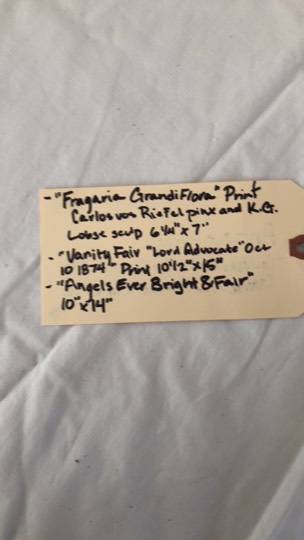 - "Fragaria Grandiflora" Print
Carlos von Riefel pinx and K.G.
Lobse sculp 6 1/4" x 7"
- "Vanity Fair "Lord Advocate" Oct
10 1874" Print 10 1/2" x 15"
- "Angels Ever Bright & Fair"
10" x 14"